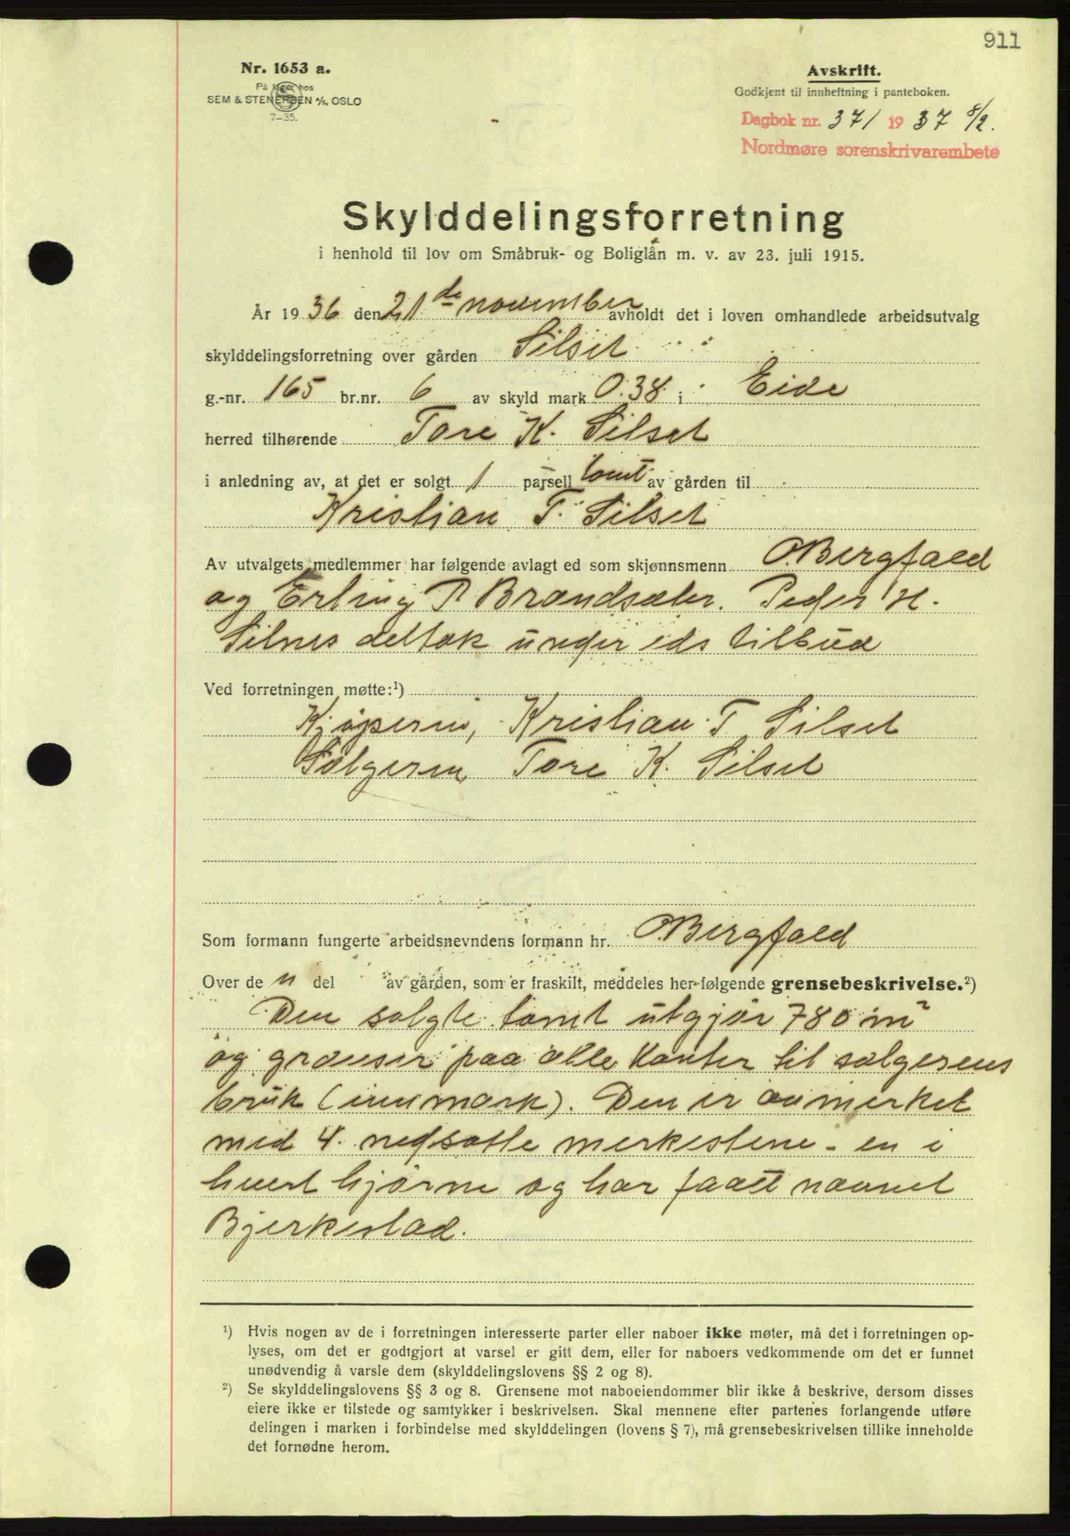 911
Nr. 1653 a.
På lager hos
SEM & STENERSEN A/S, OSLO
7-35.
Avskrift.
Godkjent til innheftning i panteboken.
Dagbok nr. 371 1937 8/2.
Nordmøre sorenskrivarembete
Skylddelingsforretning
i henhold til lov om Småbruk- og Boliglån m. v. av 23. juli 1915.
År 1936 den 21de november avholdt det i loven omhandlede arbeidsutvalg
skylddelingsforretning over gården Silset
g.-nr. 165 br.nr. 6 av skyld mark 0.38 i Eide
herred tilhørende Tore K. Silset
i anledning av, at det er solgt 1 parsell tomt av gården til
Kristian T. Silset
Av utvalgets medlemmer har følgende avlagt ed som skjønnsmenn O. Bergfald
og Erling P. Brandsæter. Peder H.
Silnes deltok under eds tilbud
Ved forretningen møtte:¹)
Kjøperen, Kristian T Silset
Sælgeren Tore K. Silset
Som formann fungerte arbeidsnevndens formann hr. O. Bergfald
Over de n del av gården, som er fraskilt, meddeles her følgende grensebeskrivelse.²)
Den solgte tomt utgjør 780 m²
og grænser paa alle kanter til sælgerens
bruk (innmark). Den er avmerket
med 4. nedsatte merkestene - en i
hvert hjørne og har faatt navnet
Bjerkestad.
¹) Hvis nogen av de i forretningen interesserte parter eller naboer ikke møter, må det i forretningen op-
lyses, om det er godtgjort at varsel er gitt dem, eller for naboers vedkommende om det er funnet
unødvendig å varsle dem (skylddelingslovens §§ 2 og 8).
²) Se skylddelingslovens §§ 3 og 8. Grensene mot naboeiendommer blir ikke å beskrive, dersom disses
eiere ikke er tilstede og samtykker i beskrivelsen. Skal mennene efter partenes forlangende utføre
delingen i marken i forbindelse med skylddelingen (lovens § 7), må grensebeskrivelsen tillike inneholde
det fornødne herom.